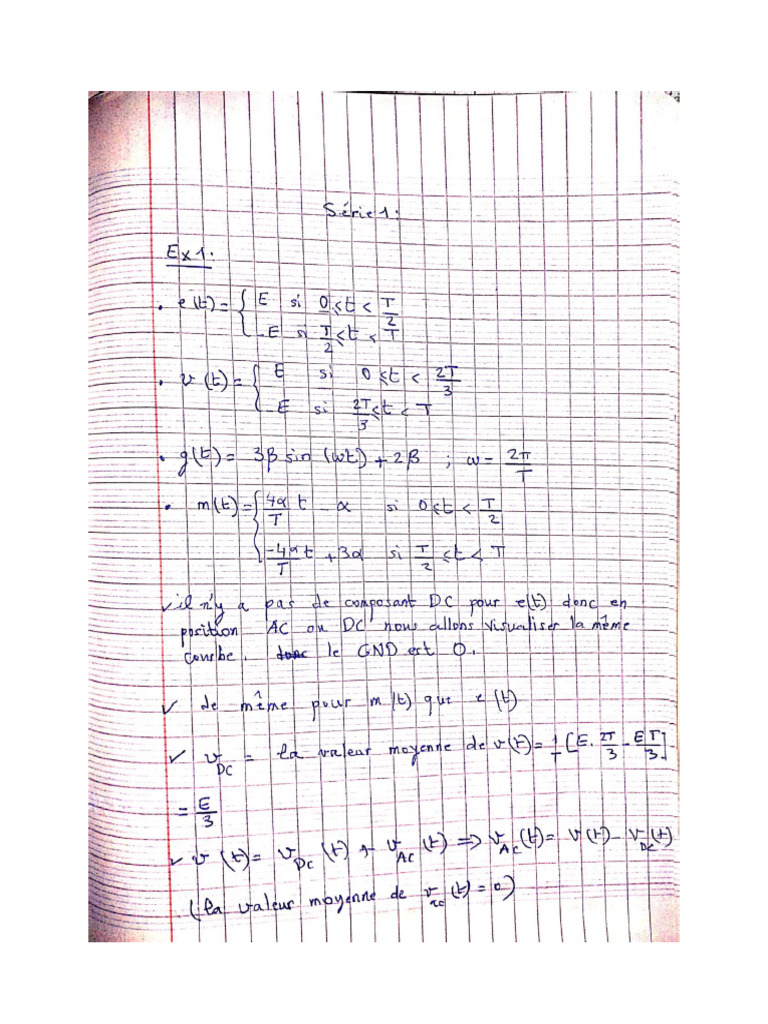 Série 1:
Ex 1:
• e(t) = { E si 0 ⩽ t < T/2
-E si T/2 ⩽ t < T
• v(t) = { E si 0 ⩽ t < 2T/3
-E si 2T/3 ⩽ t < T
• g(t) = 3β sin (wt) + 2β ; w = 2π/T
• m(t) = { 4α/T t - α si 0 ⩽ t < T/2
-4α/T t + 3α si T/2 ⩽ t < T
✓ il n'y a pas de composant DC pour e(t) donc en
position AC ou DC nous allons visualiser la même
courbe. donc le GND est 0.
✓ de même pour m(t) que e(t)
✓ v_DC = la valeur moyenne de v(t) = 1/T [E. 2T/3 - ET/3] -
= E/3
✓ v(t) = v_DC(t) + v_AC(t) => v_AC(t) = v(t) - v_DC(t)
(la valeur moyenne de v_AC(t) = 0)